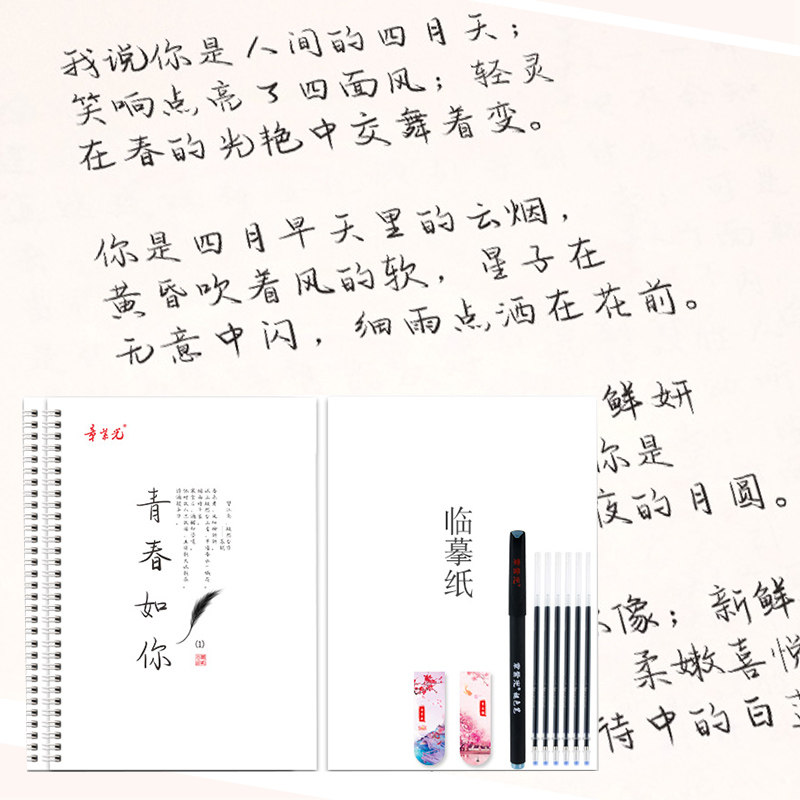 我说你是人间的四月天；
笑响点亮了四面风；轻灵
在春的光艳中交舞着变。
你是四月早天里的云烟，
黄昏吹着风的软，星子在
无意中闪，细雨点洒在花前。
鲜妍
你是
夜的月圆。
像；新鲜
柔嫩喜悦
待中的白
章紫光®
青春如你
(1)
临摹纸
章紫光®褪色笔